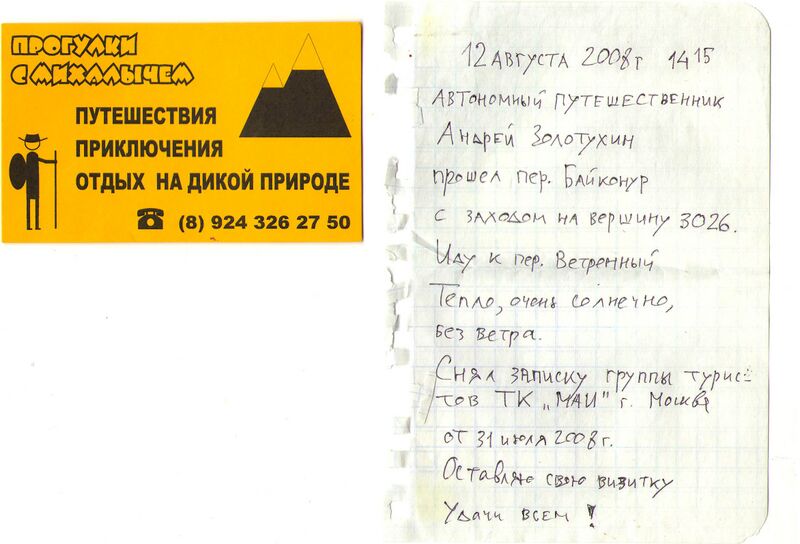 ПРОГУЛКИ
С МИХАЛЫЧЕМ
ПУТЕШЕСТВИЯ
ПРИКЛЮЧЕНИЯ
ОТДЫХ НА ДИКОЙ ПРИРОДЕ
(8) 924 326 27 50
12 августа 2008г 14 15
Автономный путешественник
Андрей Золотухин
прошел пер. Байконур
с заходом на вершину 3026.
Иду к пер. Ветренный
Тепло, очень солнечно,
без ветра.
Снял записку группы турис-
тов ТК „МАИ" г. Москва
от 31 июля 2008г.
Оставляю свою визитку
Удачи всем!